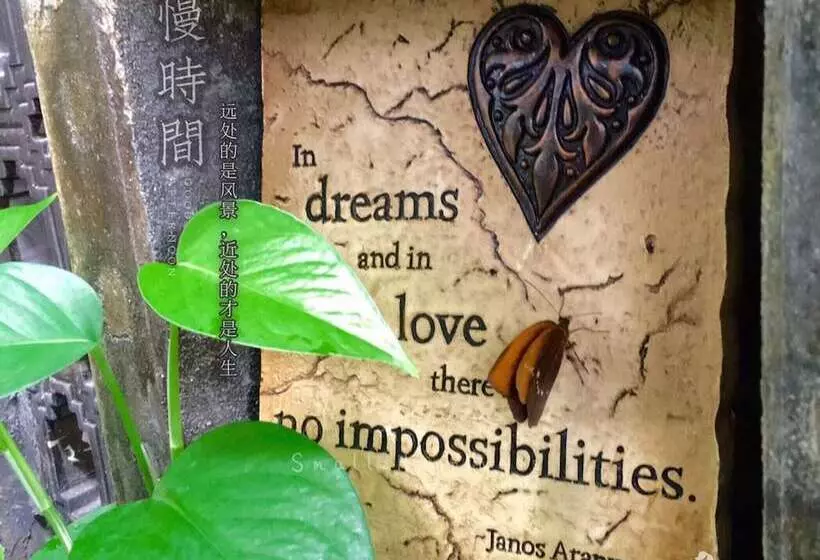 慢時間
远处的是风景，近处的才是人生
In
dreams
and in
love
there
no impossibilities.
Small
~Janos